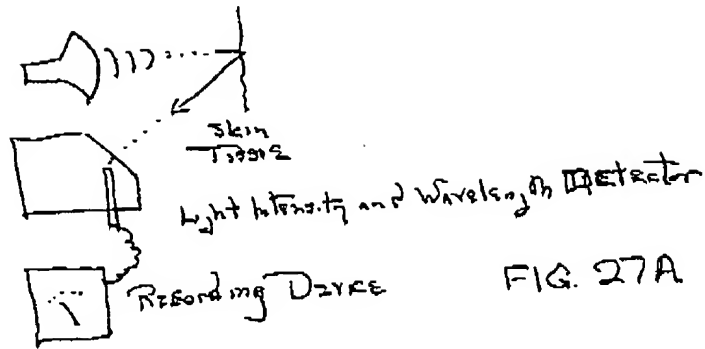 Skin
Tissue
Light Intensity and Wavelength Detector
Recording Device
FIG. 27A